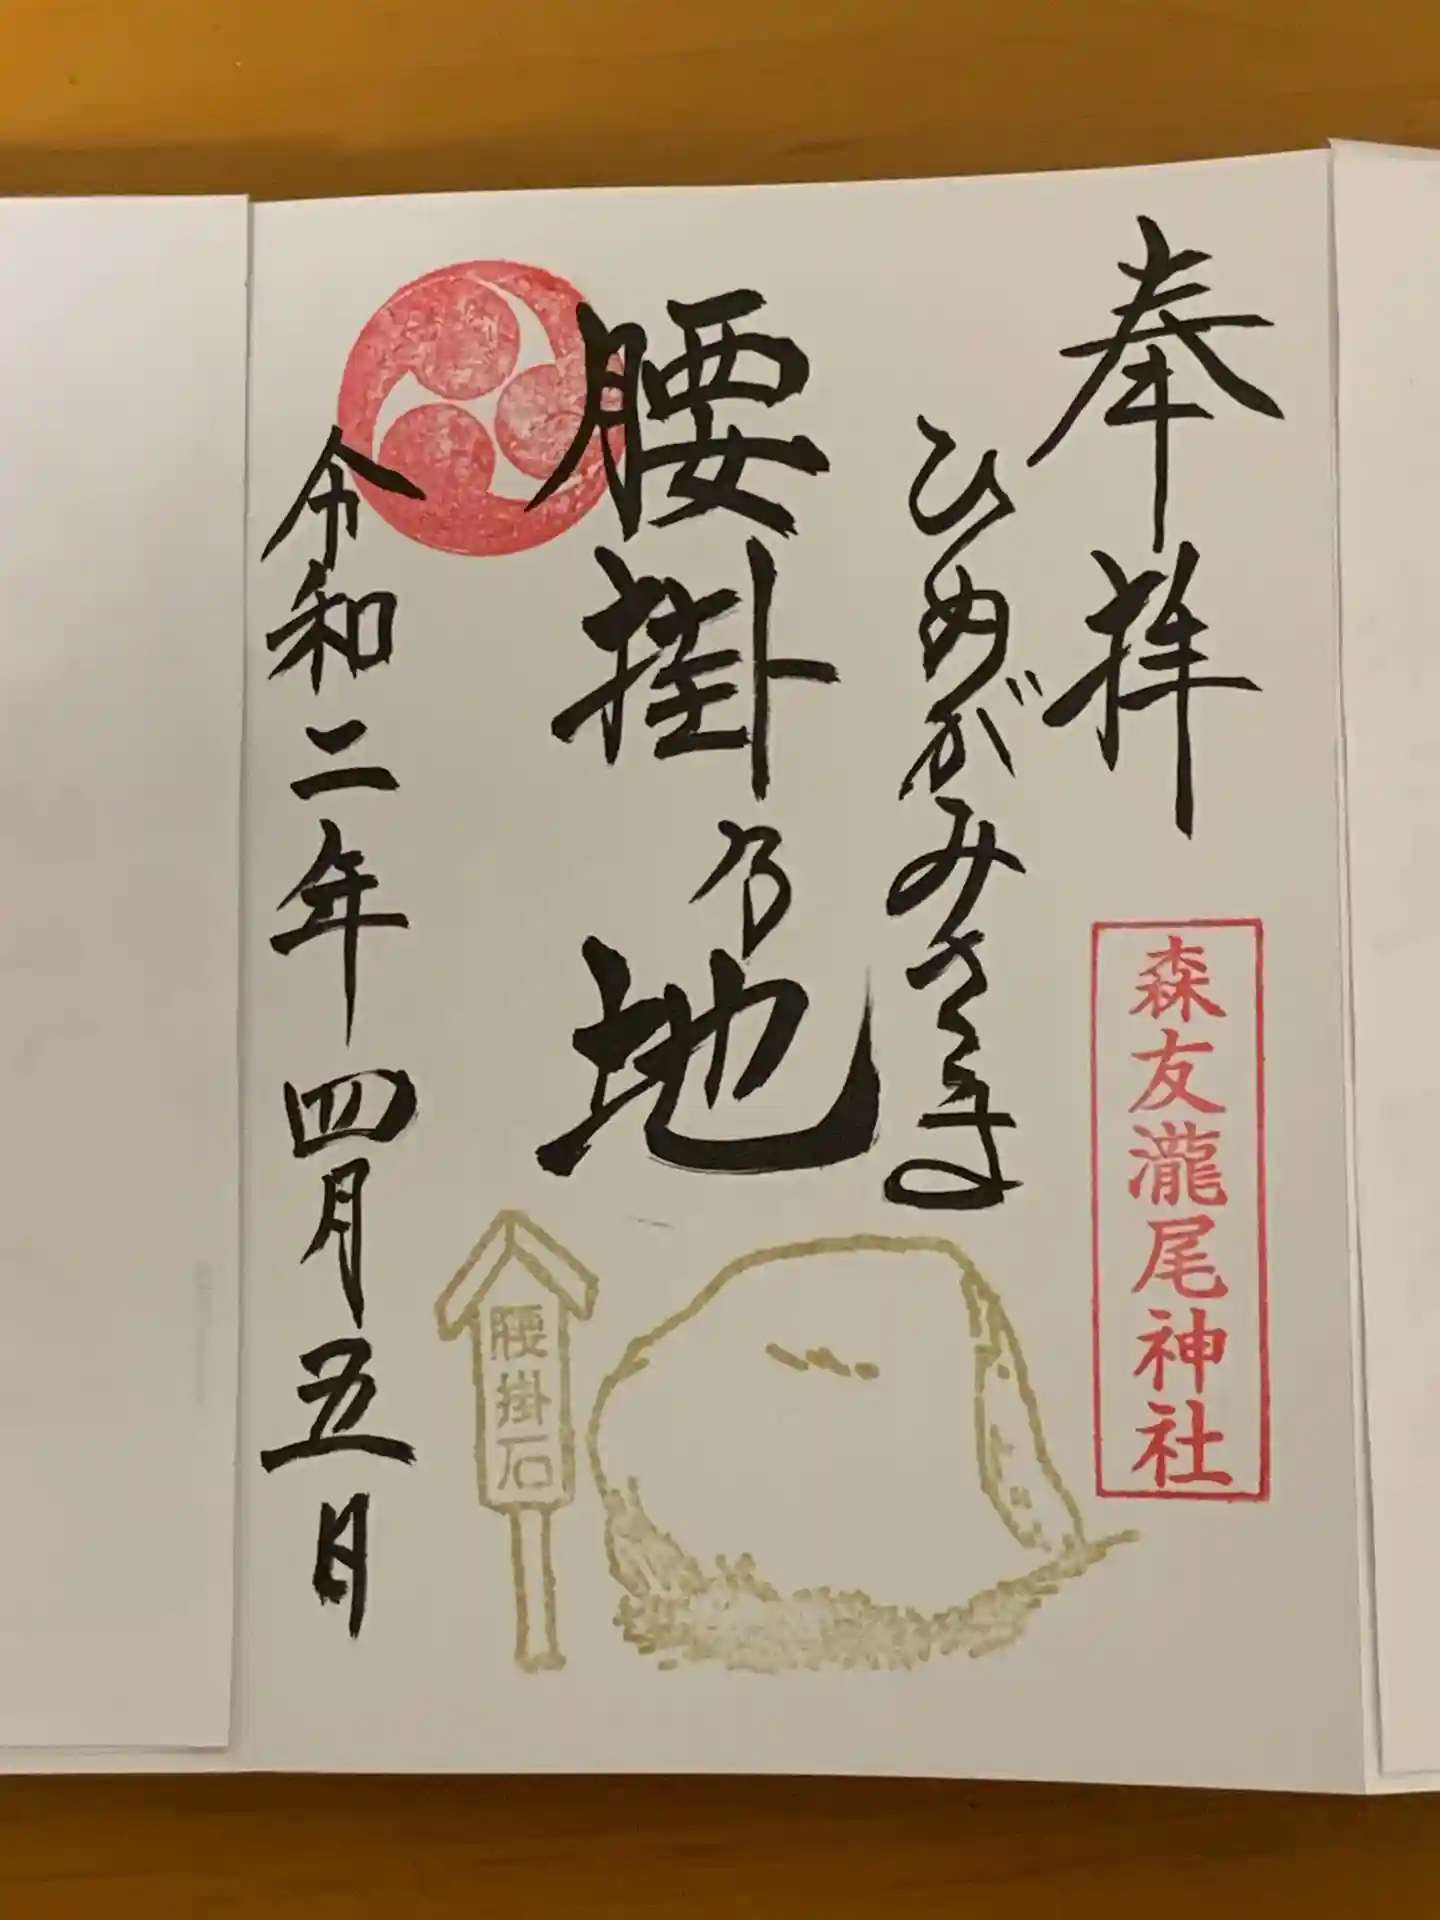 奉拝
森友瀧尾神社
ひめがみさくら
腰掛乃地
腰掛石
令和二年四月五日